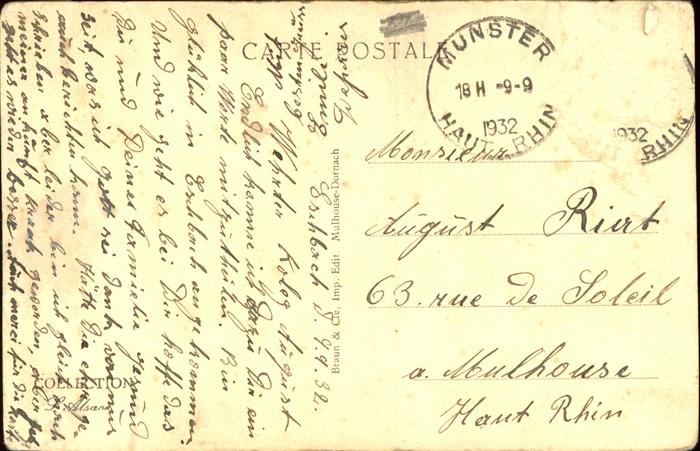 CARTE POSTALE
MUNSTER
18 H -9-9
1932
HAUT-RHIN
1932
RHIN
Monsieur
August Riert
63. rue de Soleil
a. Mulhouse
Haut Rhin
Braun & Cie, Imp. Edit Mulhouse-Dornach
COLLECTION
L'Alsace
Eschbach d. 9.9.32.
Werter Koleg August
Endlich komme ich dazu Dir ein
paar Worte mitzutheilen. Bin
glücklich in Eschbach angekommen
Und wie geht es bei Dir hoffe das
Du und Deine Familie gesund
seit, was ich Gott sei dank von mir
auch berichten kann. Hätte Dir ehr ge-
schrieben aber leider bin ich gleich nach
meiner ankunft krank geworden, aber jez
geht es wieder besser. Auch merci für die